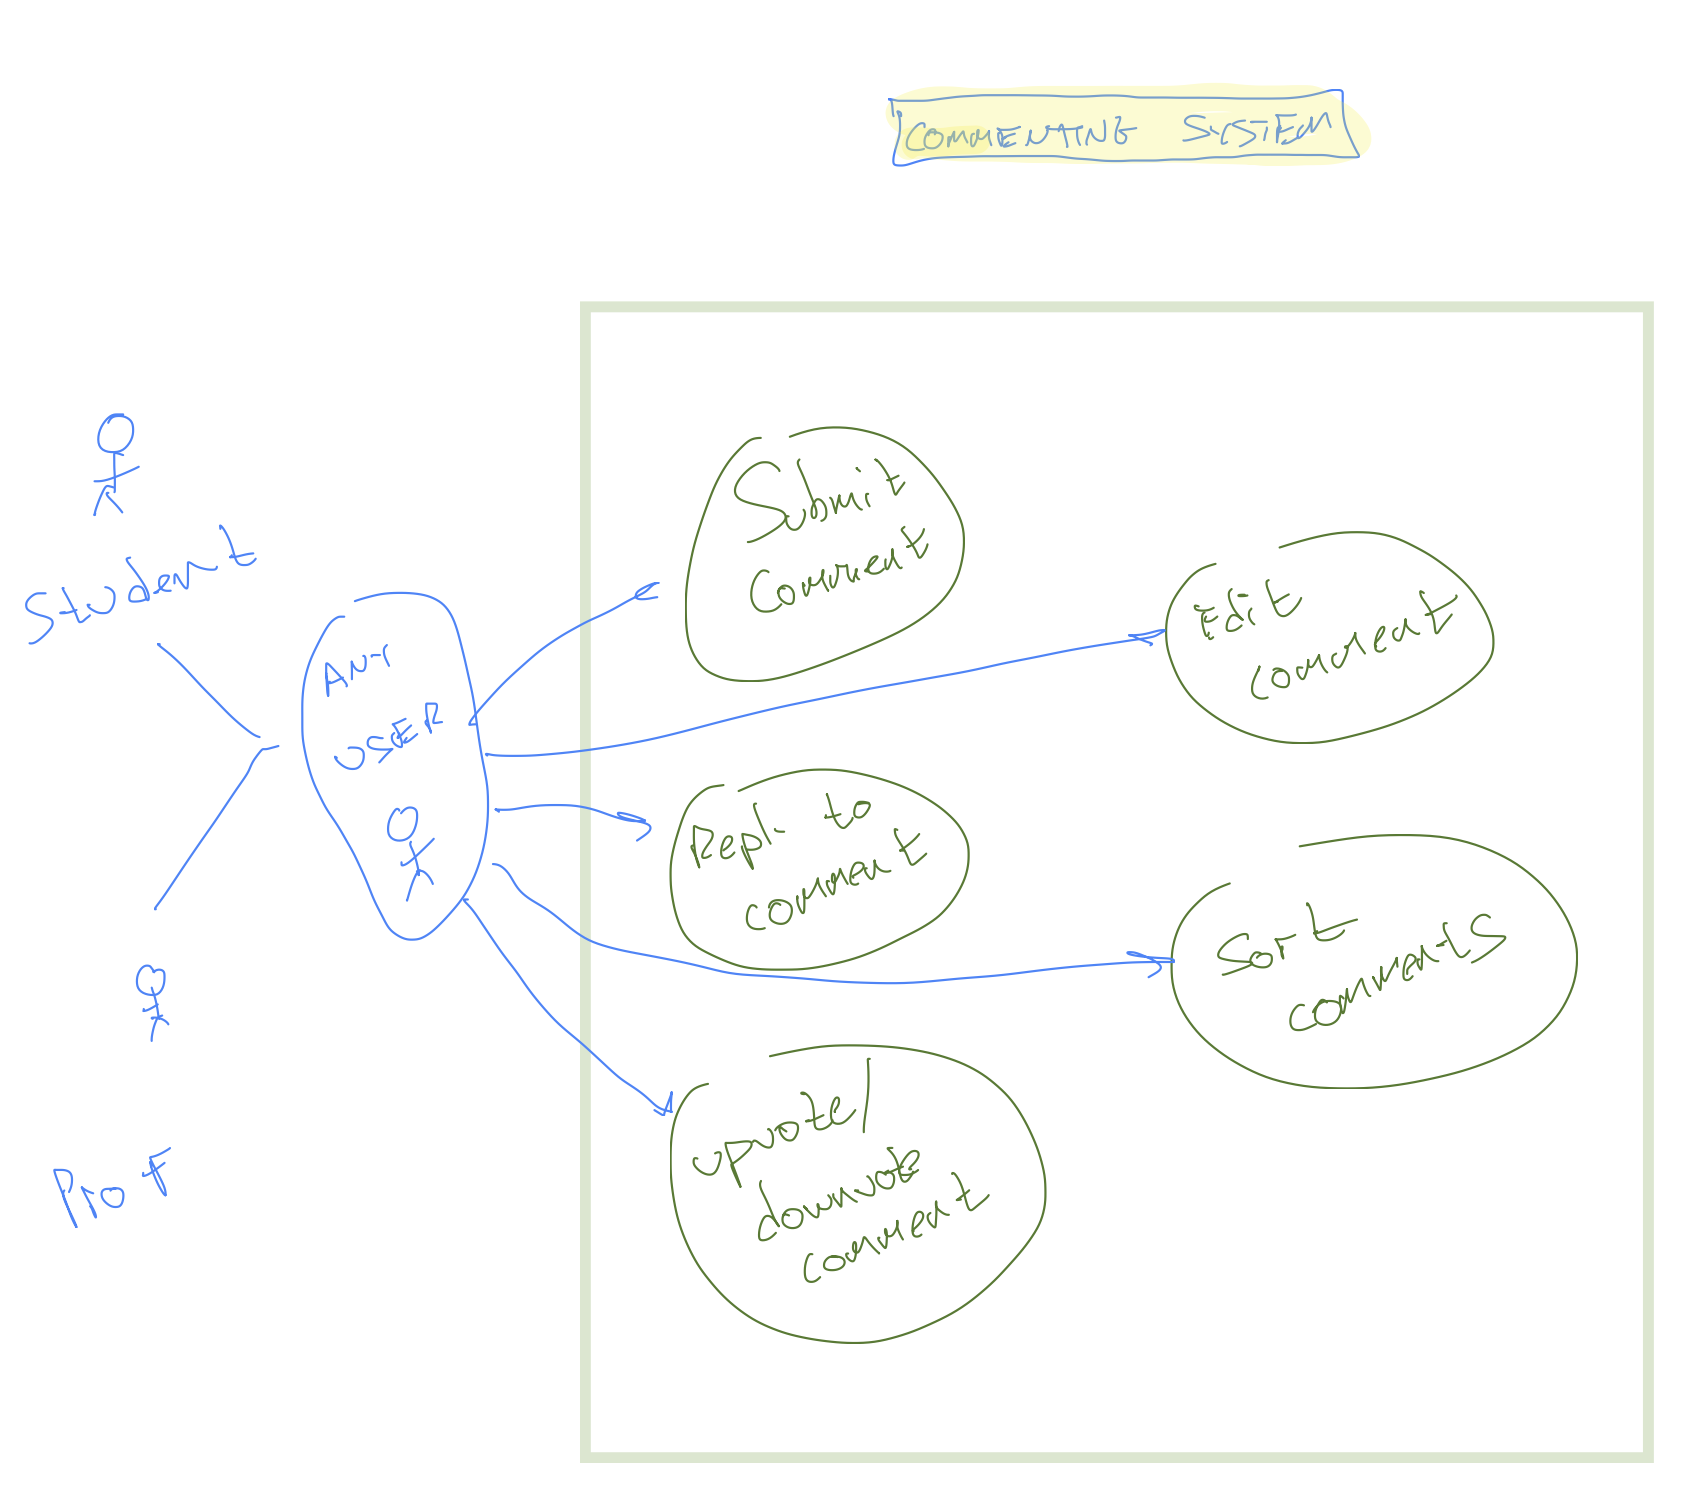 COMMENTING SYSTEM
Student
ANY
USER
Prof
Submit
Comment
Edit
comment
Reply to
comment
Sort
comments
upvote/
downvote
comment